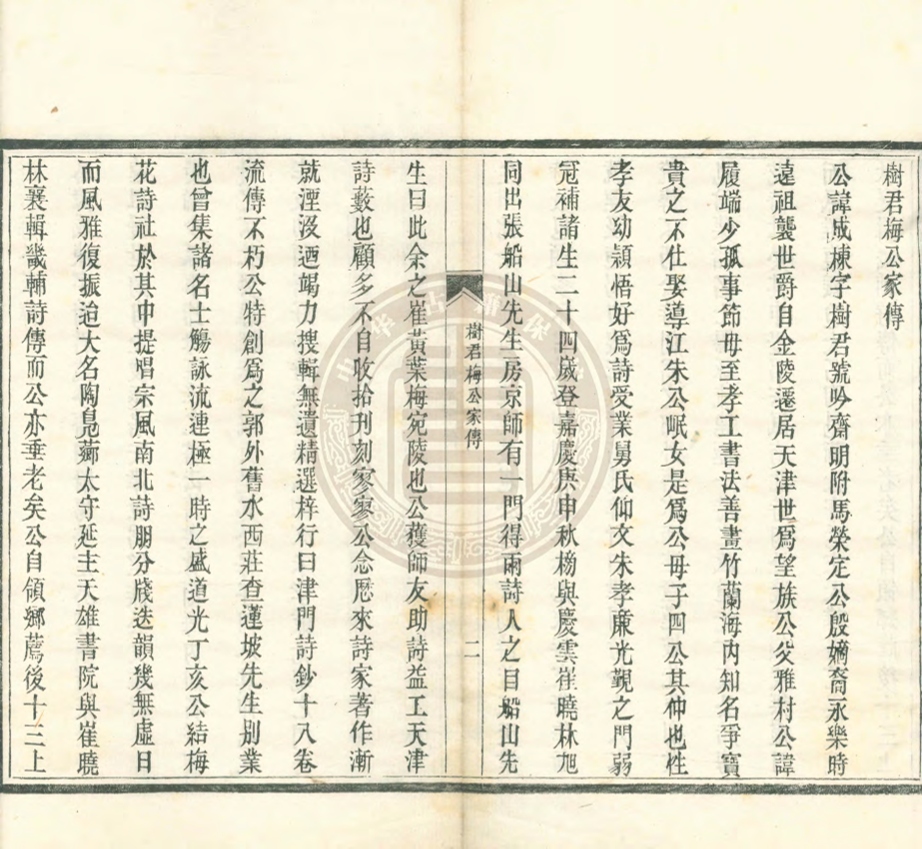 樹君梅公家傳
公諱成棟字樹君號吟齋明附馬榮定公殷嫡裔永樂時
遠祖襲世爵自金陵遷居天津世爲望族公父雅村公諱
履端少孤事節母至孝工書法善畫竹蘭海内知名爭寶
貴之不仕娶導江朱公岷女是爲公母子四公其仲也性
孝友幼穎悟好爲詩受業舅氏仰文朱孝廉光覲之門弱
冠補諸生二十四歲登嘉慶庚申秋榜與慶雲崔曉林旭
同出張船山先生房京師有一門得兩詩人之目船山先
樹君梅公家傳
二
生曰此余之崔黃葉梅宛陵也公獲師友助詩益工天津
詩藪也顧多不自收拾刊刻寥寥公念歷來詩家著作漸
就湮沒迺竭力搜輯無遺精選梓行曰津門詩鈔十八卷
流傳不朽公特創爲之郭外舊水西莊查蓮坡先生别業
也曾集諸名士觴詠流連極一時之盛道光丁亥公結梅
花詩社於其中提唱宗風南北詩朋分牋迭韻幾無虛日
而風雅復振迨大名陶鳧薌太守延主天雄書院與崔曉
林襄輯畿輔詩傳而公亦垂老矣公自領鄉薦後十三上